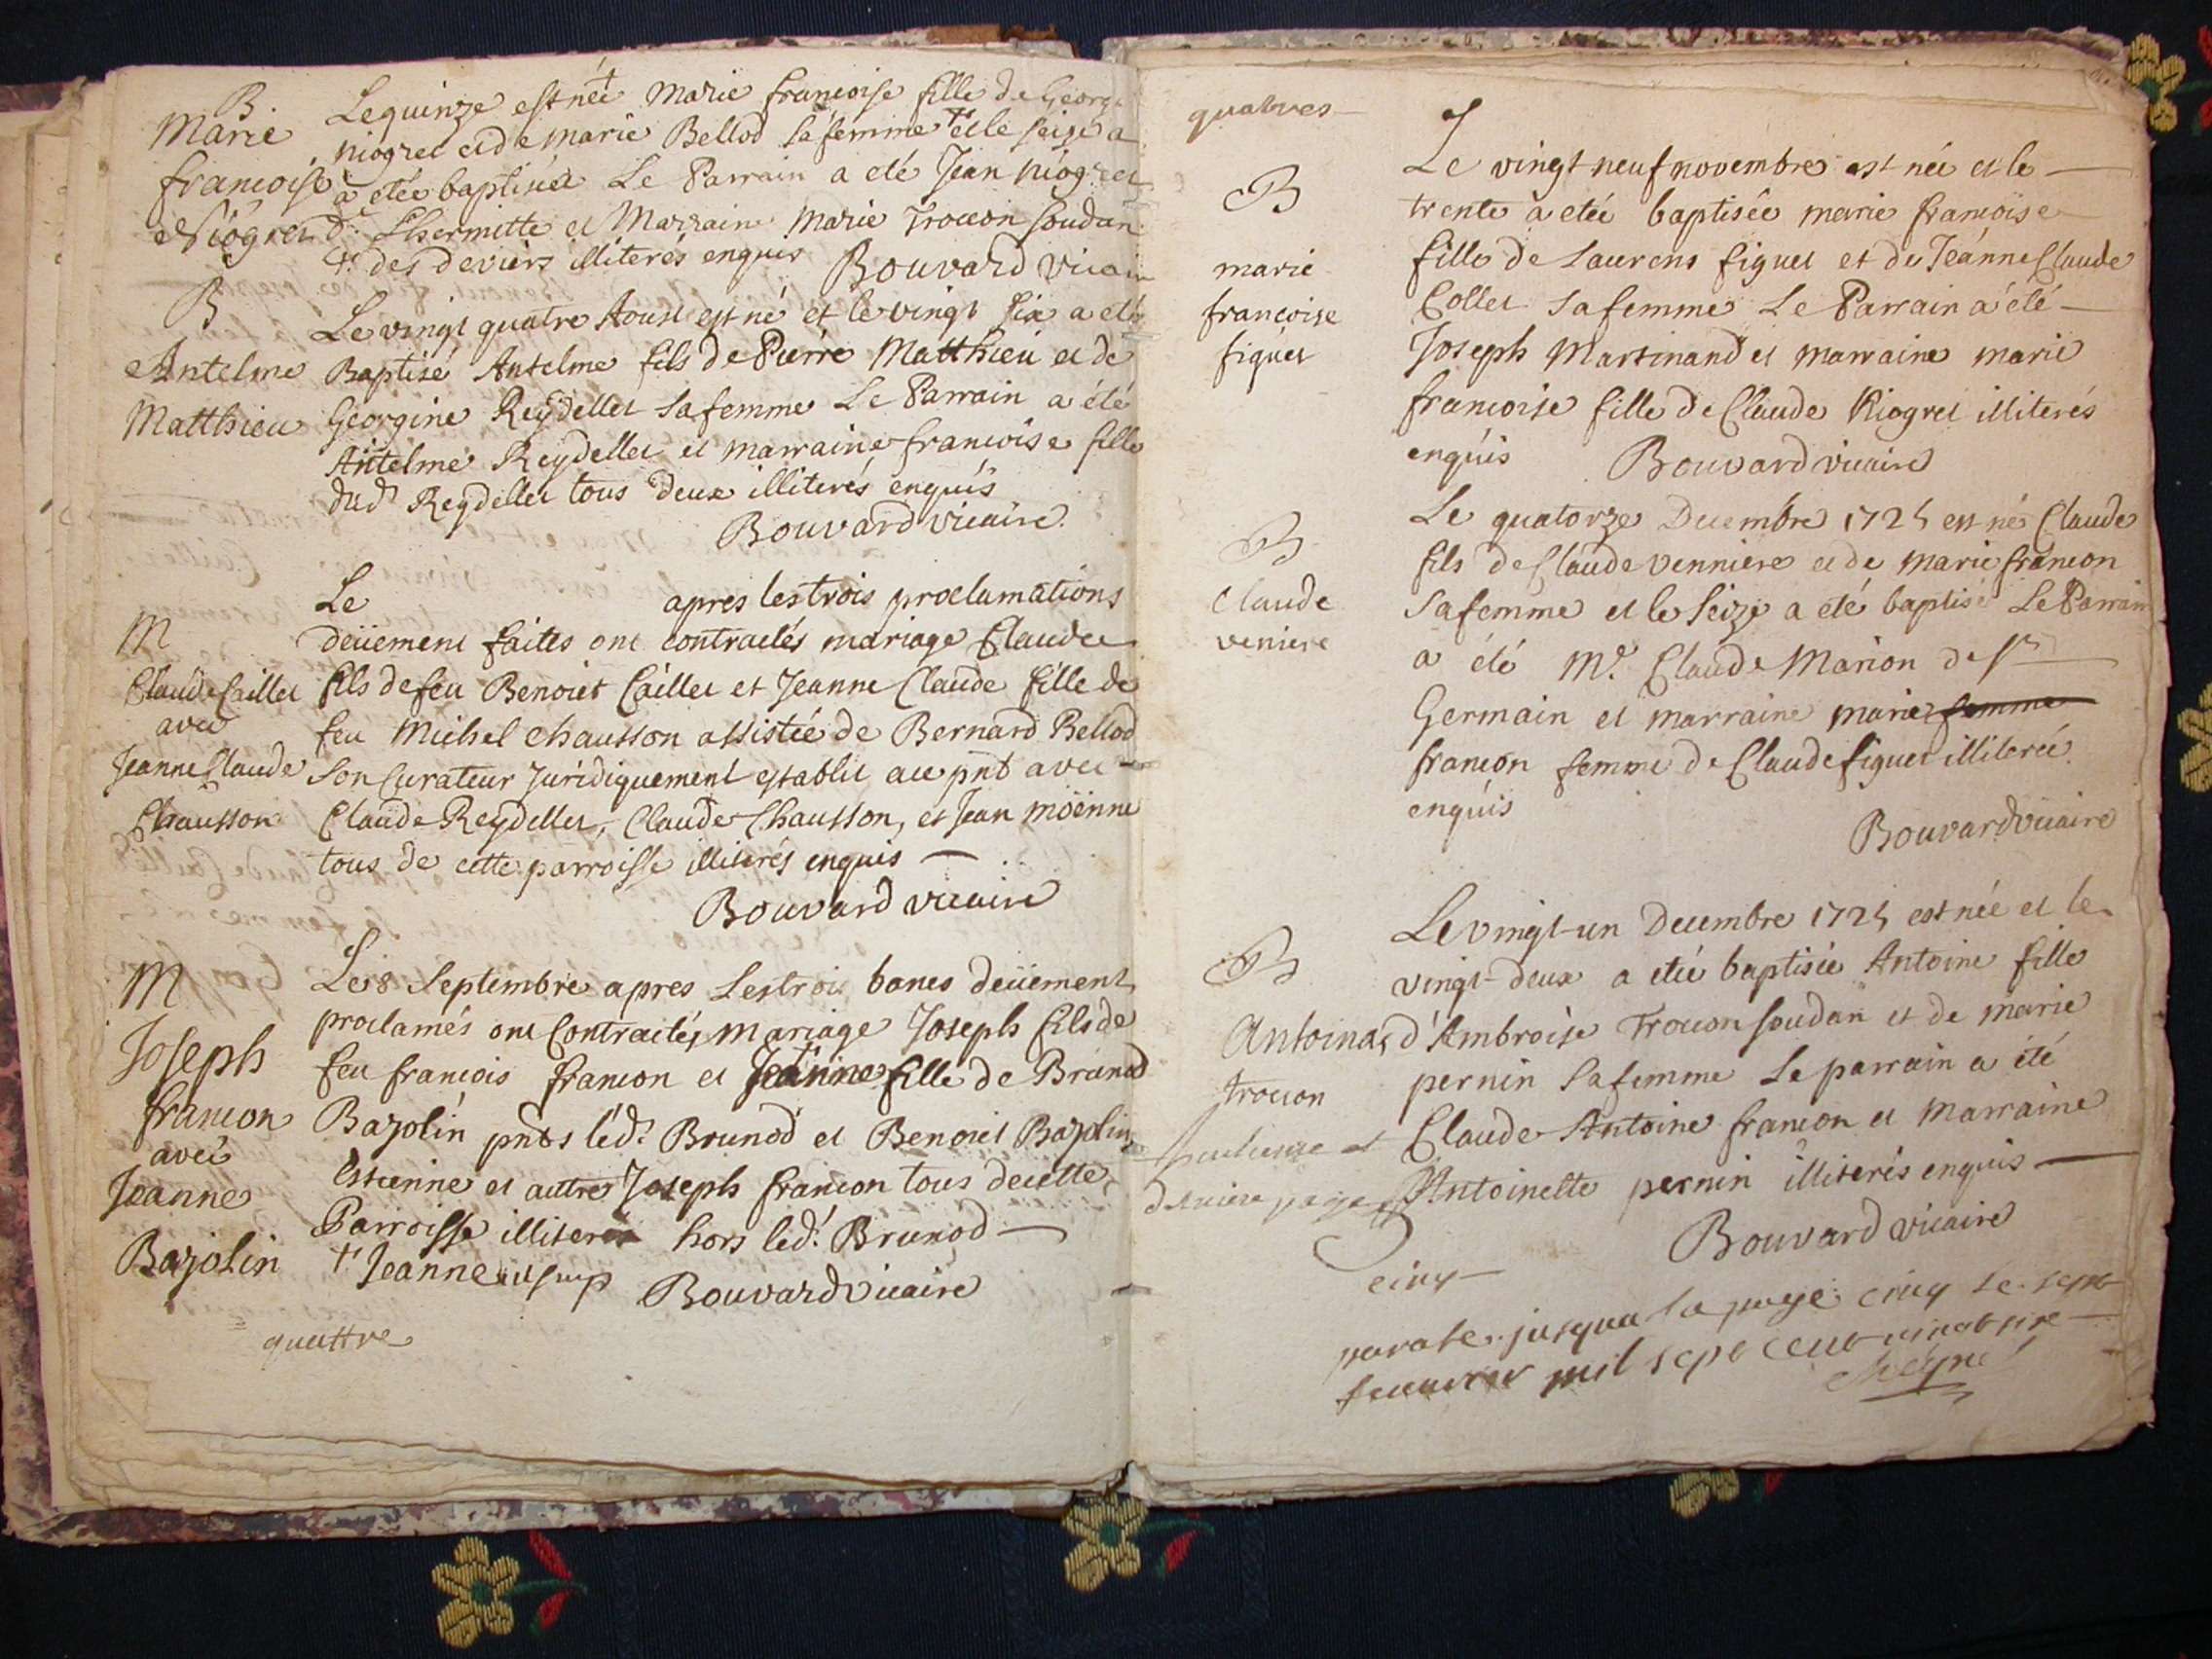 B.
Marie
francoise
Niogret
Le quinze est née + Marie francoise fille de George
niogret et de marie Bellod sa femme + et le seize a
a etée baptisée Le Parrain a eté Jean Niogret
dt Lhermitte et Marraine Marie Troccon soudan
+ des deviers illiterés enquis Bouvard vicaire
B
Antelme
Matthieu
Le vingt quatre Aoust est né et le vingt six a eté
Baptisé Antelme fils de Pierre Matthieu et de
Georgine Reydellet sa femme Le Parrain a été
Antelme Reydellet et marraine francoise fille
dud. Reydellet tous deux illiterés enquis
Bouvard vicaire.
M
Claude Caillet
avec
Jeanne Claude
Chausson
Le apres les trois proclamations
deüement faites ont contractés mariage Claude
fils de feu Benoiet Caillet et Jeanne Claude fille de
feu Michel chausson assistée de Bernard Bellod
son Curateur Juridiquement establit au pnt avec
Claude Reydellet, Claude Chausson, et Jean moënne
tous de cette parroisse illiterés enquis
Bouvard vicaire
M
Joseph
francon
avec
Jeanne
Bazolin
Le 8 Septembre apres Les trois bancs deüement
proclamés ont Contractés mariage Joseph fils de
feu francois francon et Jeanne fille de Brunod
Bazolin pnts léd. Brunod et Benoiet Bazolin
Estienne et autre Joseph francon tous de cette
Parroisse illiterés hors led. Brunod
+ Jeanne Bouvard vicaire
quattre
quatres
B
marie
francoise
figuet
Le vingt neuf novembre est née et le
trente a etée baptisée marie francoise
fille de Laurens figuet et de Jeanne Claude
Collet sa femme Le Parrain a été
Joseph Martinand et marraine marie
francoise fille de Claude Niogret illiterés
enquis Bouvard vicaire
B
Claude
veniere
Le quatorze Decembre 1725 est né Claude
fils de Claude venniere et de marie francon
sa femme et le seize a été baptisé Le Parrain
a été Me. Claude Marion de St
Germain et marraine marie femme
francon femme de Claude figuet illiterée
enquis
Bouvard vicaire
B
Antoina
troccon
Le vingt-un Decembre 1725 est née et le
vingt-deux a etée baptisée Antoine fille
d'Ambroise Troccon soudan et de marie
pernin sa femme Le parrain a été
Claude Antoine francon et Marraine
Antoinette pernin illiterés enquis
Bouvard vicaire
et
derniere page
cinq
parafé jusqua la page cinq le sept
feuvrier mil sept cent vingt six